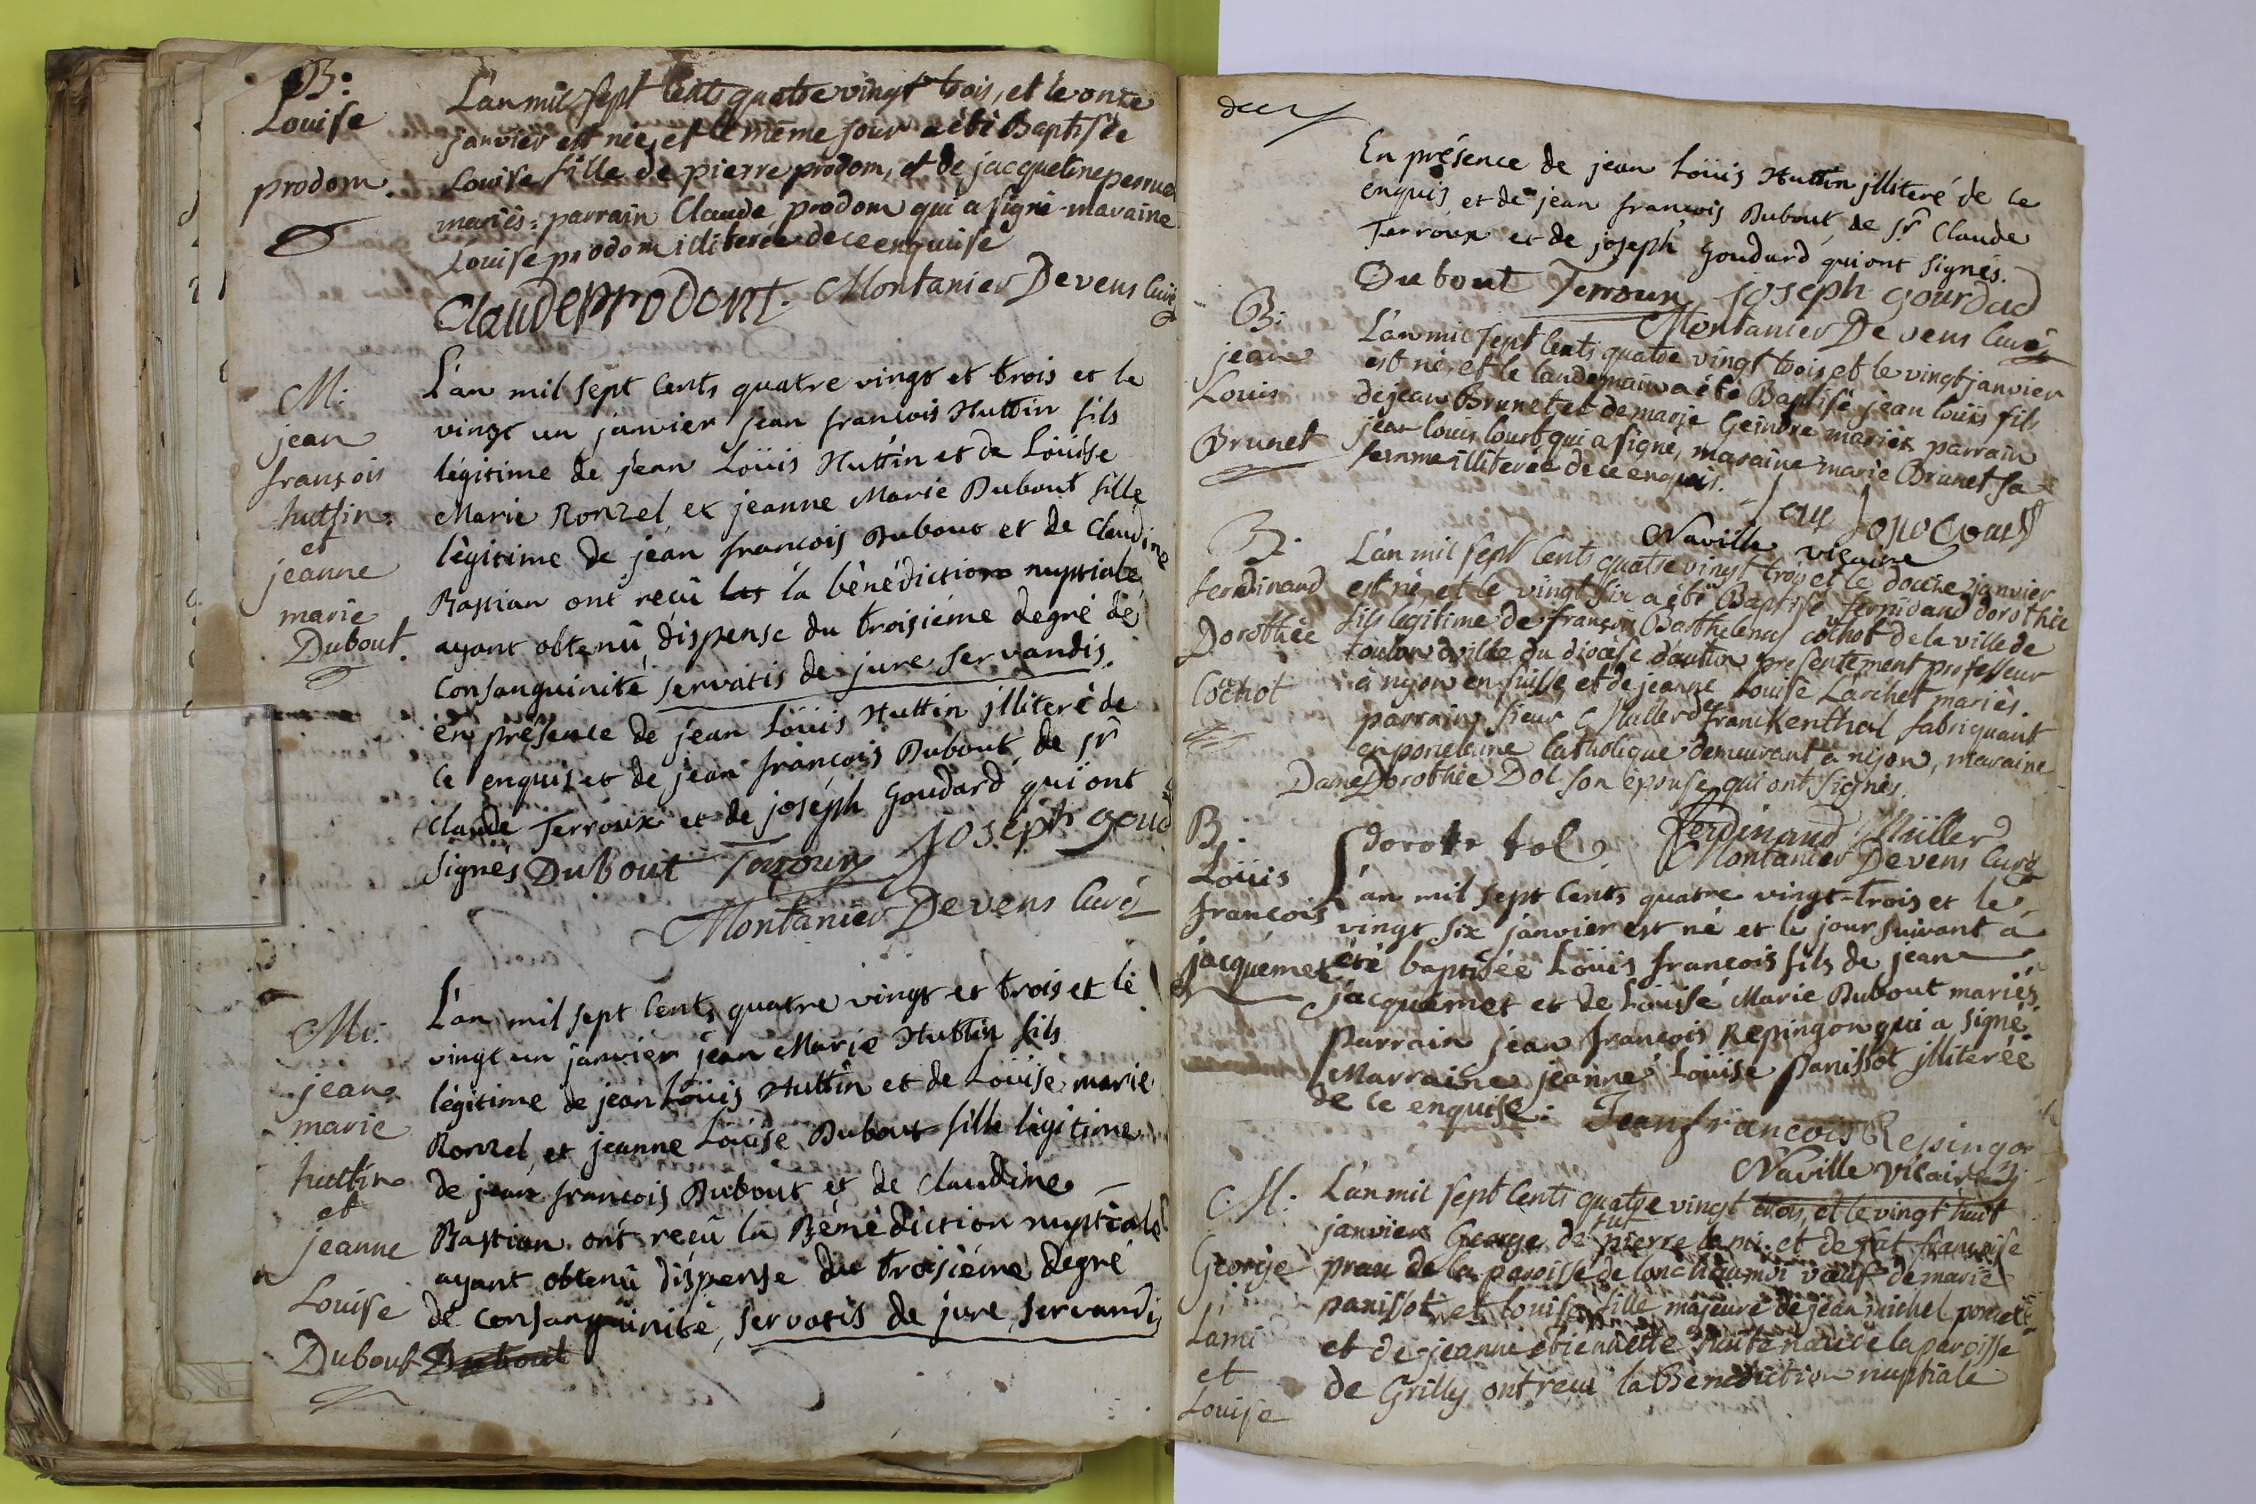 B:
Louise
prodom.
L'an mil sept Cents quatre vingt trois, et le onze
janvier est née, et le même jour a été Baptisée
Louise fille de pierre prodom, et de jacqueline pernue
mariés: parrain Claude prodom qui a signé maraine
Louise prodom illiterée de ce enquise
Claude prodont. Montanier Devens Curé
M:
jean
françois
huttin
et
jeanne
marie
Dubout.
L'an mil sept Cents quatre vingt et trois et le
vingt un janvier jean françois Huttin fils
légitime de jean Loüis Huttin et de Loüise
Marie Ronzel, et jeanne Marie Dubout fille
légitime de jean françois Dubout et de Claudine
Bastian ont reçû las la bénédiction nuptiale
ayant obtenû dispense du troisiéme degré de
Consanguinité servatis de jure servandis.
en présence de jean Loüis Huttin jlliteré de
ce enquis et de jean françois Dubout de Sr
Claude Terroux et de joséph Goudard qui ont
signés Dubout Terroux Joseph goud
Montanier Devens Curé
M:
jean
marie
huttin
et
jeanne
Louise
Dubout Dubout
L'an mil sept Cents quatre vingt et trois et le
vingt un janvier jean Marie Huttin fils
légitime de jean Loüis Huttin et de Loüise marie
Ronzel, et jeanne Loüise Dubout fille légitime
de jean françois Dubout et de Claudine
Bastian ont reçû la Bénédiction nuptiale
ayant obtenû dispense du troisiéme degré
de Consanguinité, servatis de jure servandis
En présence de jean Loüis Huttin jlliteré de ce
enquis et de jean françois Dubout de Sr Claude
Terroux et de joseph Goudard qui ont signés.
Dubout Terroux joseph gourdad
Montanier Devens Curé
B:
jean
Louis
Brunet
L'an mil sept Cents quatre vingt trois et le vingt janvier
est né, et le landemain a été Baptisé jean louis fils
de jean Brunet et de marie Geindre mariés parrain
jean louis Court qui a signé, maraine marie Brunet sa
femme illiterée de ce enquis.
Naville vicaire
B:
ferdinand
Dorothée
Cochot
L'an mil sept Cents quatre vingt trois et le douze janvier
est né, et le vingt six a été Baptisé fernidand dorothée
fils legitime de françois Barthelemy cochot de la ville de
toulon ville du diocése d'autun presentement professeur
a nyon en suisse et de jeanne Louise Larchet mariés.
parrain sieur Muller de franckenthal fabriquant
en porcelaine Catholique demeurant a nyon, maraine
Dame Dorothée Dol son epouse qui ont signés.
dorote dol Ferdinand Müller
Montanier Devens Curé
B:
Loüis
françois
jacquemet
L'an mil sept Cents quatre vingt-trois et le
vingt six janvier est né et le jour suivant a
été baptisée Loüis françois fils de jean
jacquemet et de Louise Marie Dubout mariés
Parrain jean françois Repingon qui a signé
Marraine jeanne Louise Panissot jlliterée
de ce enquise: Jean francois Repingon
Naville Vicaire
M:
George
Lami
et
Louise
L'an mil sept Cents quatre vingt trois, et le vingt huit
janvier George de fut pierre lami et de fût françoise
prau de la paroisse de lonchaumoi veuf de marie
panissot et louise fille majeure de jean michel poncet
et de jeanne etiennette de la paroisse
de Grilly ont recu la Benediction nuptiale